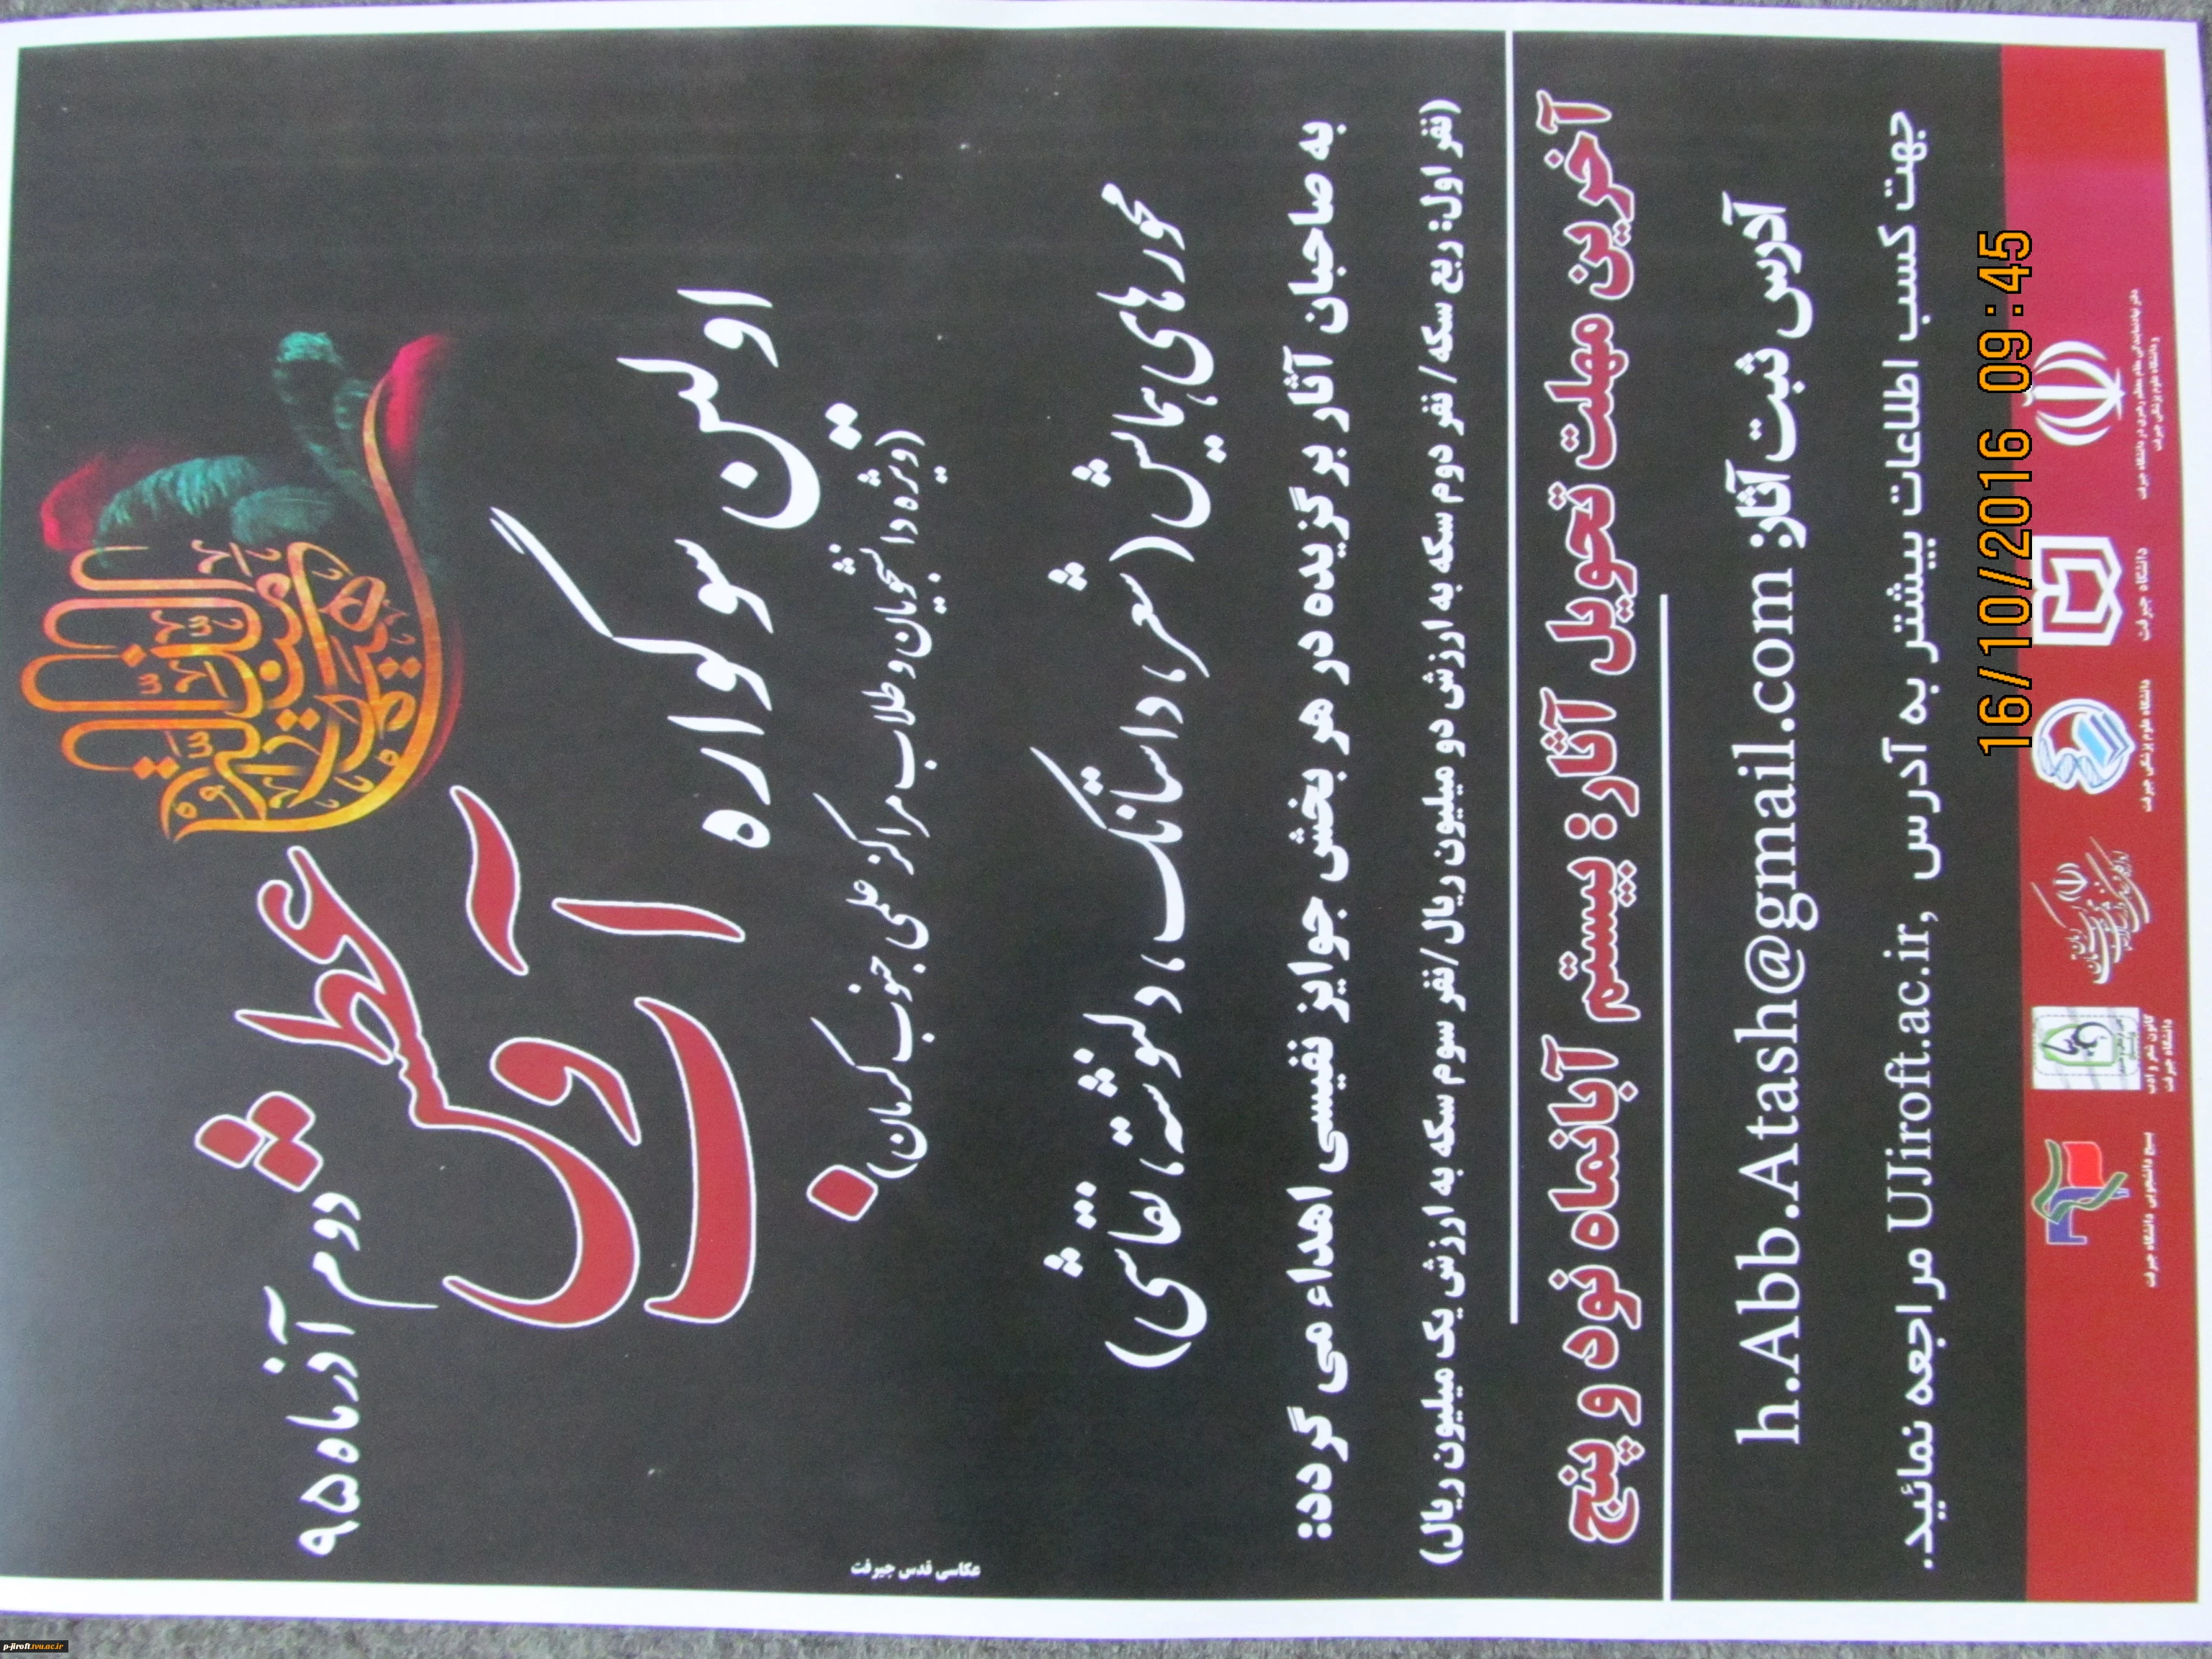 دوم آذرماه ۹۵
اولین سوکواره
عطش و آب
(ویژه دانشجویان و طلاب مراکز علمی جنوب کرمان)
محورهای همایش (شعر، داستانک، دلنوشته، نقاشی)
به صاحبان آثار برگزیده در هر بخش جوایز نفیسی اهداء می گردد:
(نفر اول: ربع سکه/ نفر دوم سکه به ارزش دو میلیون ریال/نفر سوم سکه به ارزش یک میلیون ریال)
آخرین مهلت تحویل آثار: بیستم آبانماه نود و پنج
آدرس ثبت آثار: h.Abb.Atash@gmail.com
جهت کسب اطلاعات بیشتر به آدرس UJiroft.ac.ir, مراجعه نمائید.
دفتر نهاد نمایندگی مقام معظم رهبری در دانشگاه جیرفت
و دانشگاه علوم پزشکی جیرفت
دانشگاه جیرفت
دانشگاه علوم پزشکی جیرفت
کانون شعر و ادب
دانشگاه جیرفت
بسیج دانشجویی دانشگاه جیرفت
عکاسی قدس جیرفت
16/10/2016 09:45
p-jiroft.tvu.ac.ir